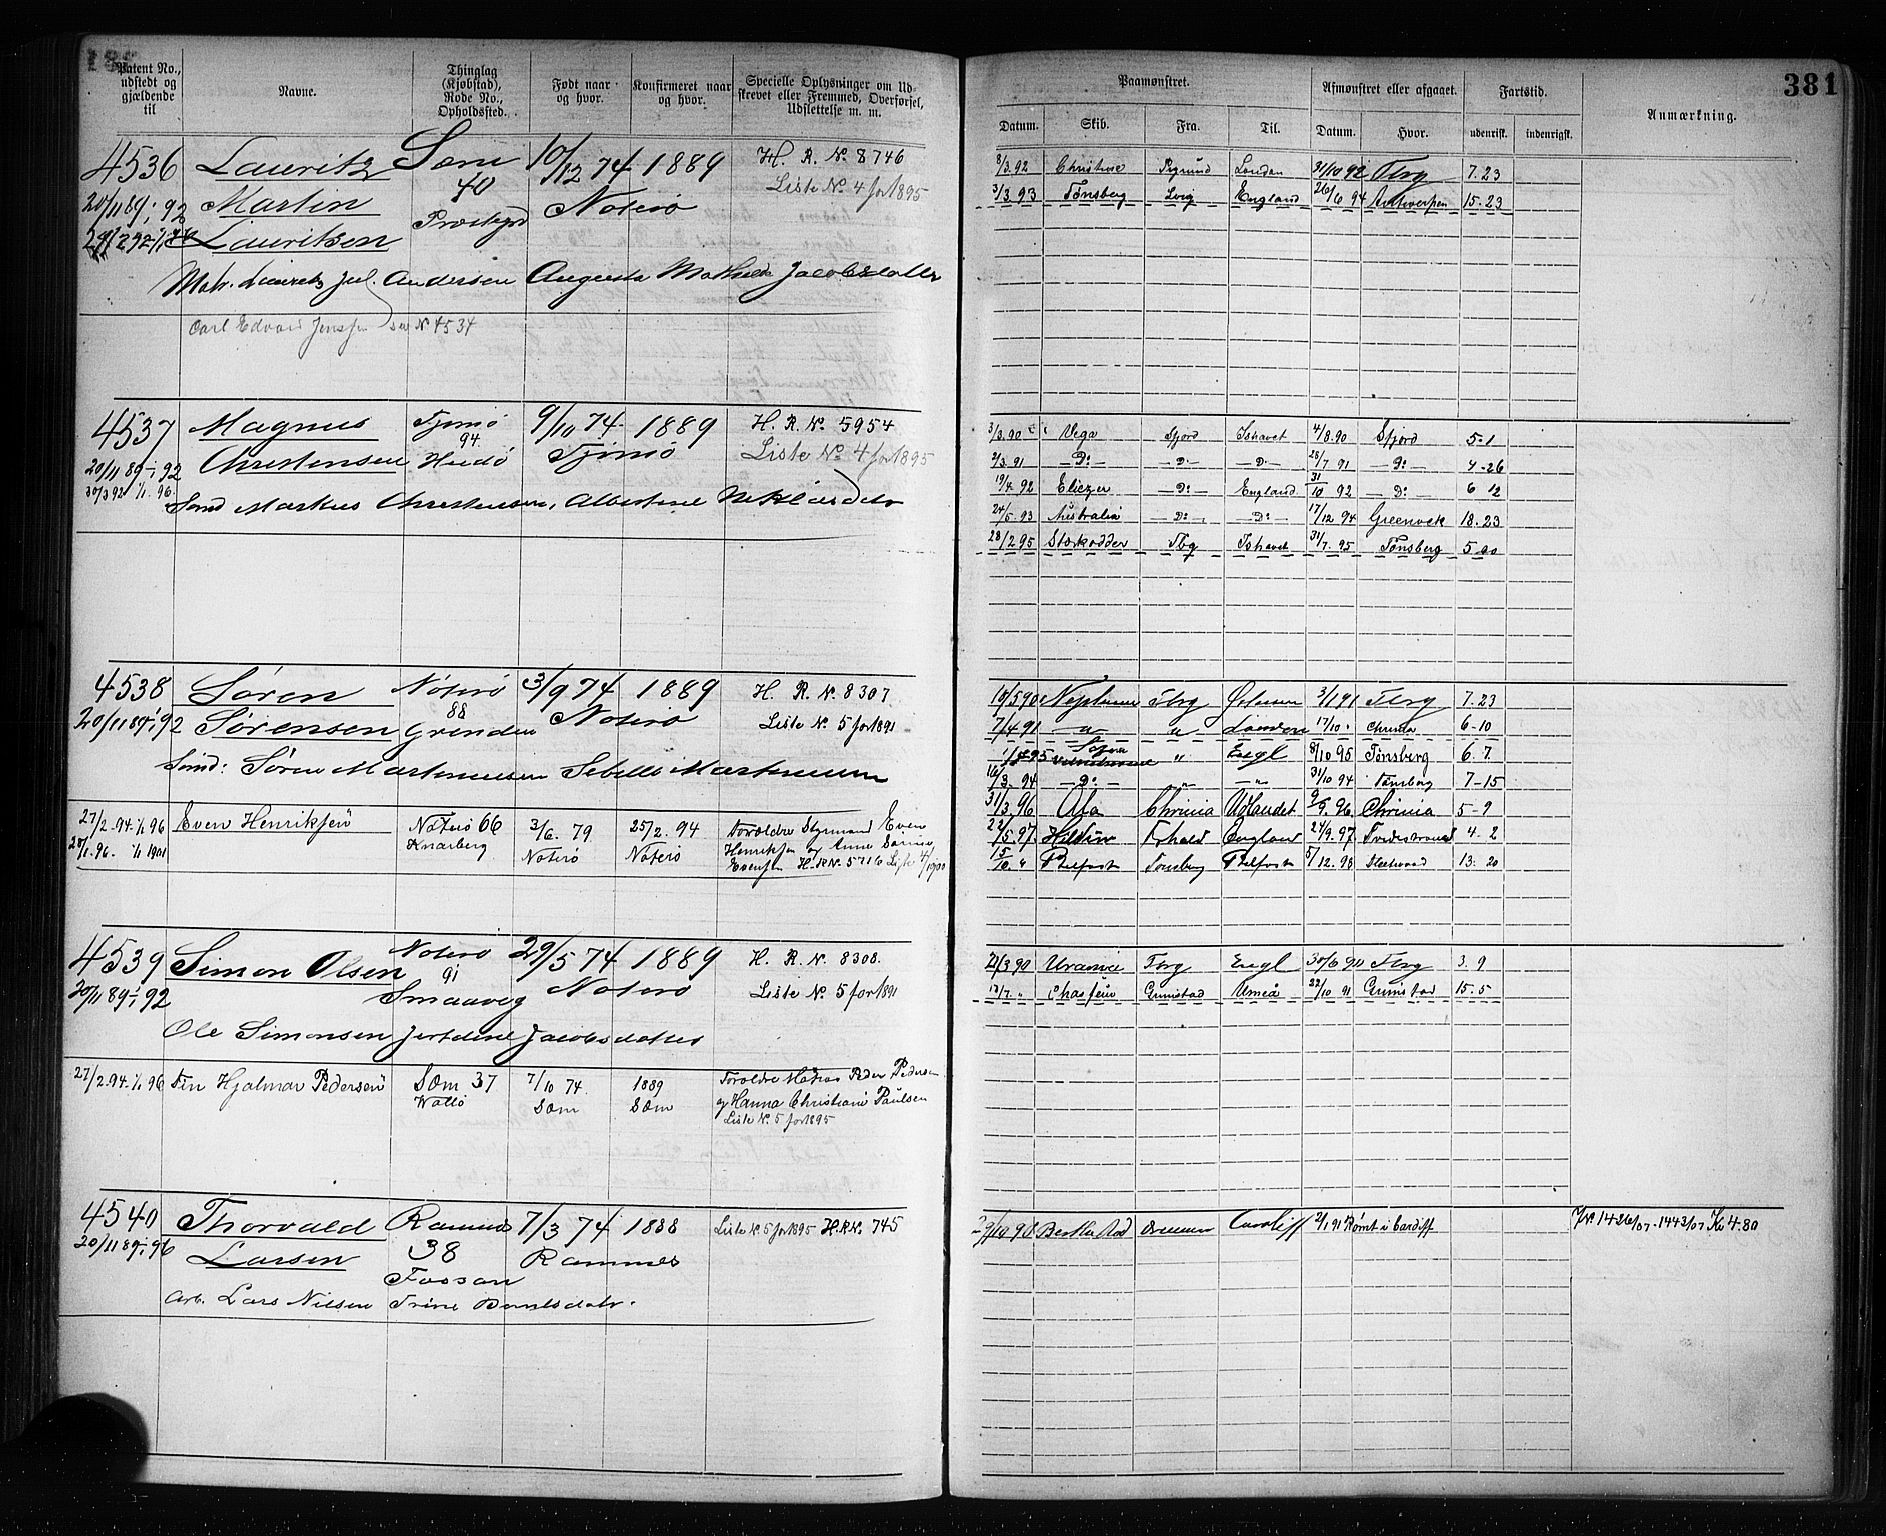 381
Patent No., udstedt og gjældende til
Navne.
Thinglag (Kjøbstad), Rode No., Opholdssted.
Født naar og hvor.
Konfirmeret naar og hvor.
Specielle Oplysninger om Udskrevet eller Fremmed, Overførsel, Udslettelse m. m.
Paamønstret.
Afmønstret eller afgaaet.
Fartstid.
Anmærkning.
Datum. Skib. Fra. Til. Datum. Hvor. udenrigs. indenrigs.
4536 Lauritz Sem 10/12 74 1889 H. R. No. 8746
40 Liste No. 4 for 1895
20/11 89-1/1 92 Martin Nøterö
Lauritsen
Matr. Laurets Jul. Andersen Augusta Mathilde Jacobsdatter
Carl Edvard Jenssen se No 4534
8/3.92 Christine London 31/10 92 Tbrg 7.23
3/3.93 Tønsberg Lvig England 26/6 94 Antwerpen 15-23
4537 Magnus Tjømö 9/10 74 1889 H. R. No. 5954
94. Liste No. 4 for 1895
20/11 89-1/1 92 Christensen Tjömö
30/3 92 1/1. 96.
Markus Christensen, Albertine
3/3.90 Vega Sfjord Ishavet 4/8.90 Sfjord 5-1
2/3.91 —D:— —D— —D— 28/7 91 —D:— 4-26
19/4 92 Eliezer —D:— England 31/10 92 —D:— 6 12
24/5 93 Australia —D:— —D:— 17/12 94 Greenock 18.23
28/2 95 Stærkodder Tbg Ishavet 31/7. 95 Tønsberg 5
4538 Sören Nöterö 3/9 74 1889 H. R. No. 8307
88 Liste No. 5 for 1891
20/11 89-1/1 92 Sørensen Grinden Nöterö
Sören Martinussen
10/5 90 Neptunus Tbrg 3/1 91 Tbrg 7.23
7/4 91 —"— " London 17/10 Chrania 6-10
95 " Engl 8/10 95 Tønsberg 6.7.
16/3. 94 —D:— " —"— 31/10 94 Tønsberg 7-15
27/2.94-1/1 96 Even Henriksen Nøterö 66 3/6. 79 25/2. 94 Forældre Styrmand Even
1/1 1901 Knarberg Nøterö Nøterö Henriksen og Anne
Evensen H.R No. 5716
31/3.96 Chrinia Udlandet 9/9. 96 Chrinia 5-9
22/5.97 England 24/9.97 4-2
15/10. " Belfast Tønsberg Belfast 5/12. 98 Fleetwood 13. 20
4539 Simon Olsen Nöterö 29/5 74 1889 H. R. No. 8308.
91 Liste No. 5 for 1891
20/11 89-1/1 92 Smaaveg Nöterö
Ole Simonsen Jacobsdatter
21/3 90 Urania Tbrg Engl 30/6 90 Tbrg 3.9
Grimstad Umeå 22/10 91 Grimstad 15.5
27/2.94-1/1 96 Fin Hjalmar Pedersen Sæm 37 7/10 74. 1889 Forældre Matros Peder Pedersen
Vallö Sæm Sæm og Hanna Christiane Paulsen
Liste No. 5 for 1895
4540 Thorvald Ramnes 7/3 74 1888 Liste No. 5 for 1895 H.R.No. 745
20/11 89-1/1 96 Larsen 38 Ramnes
Fossan
Arb. Lars Nilsen Trine
29/10 90 Drammen Cardiff 2/1 91 Rømt i Cardiff
JNo 1426/07-1443/07 K 4.80